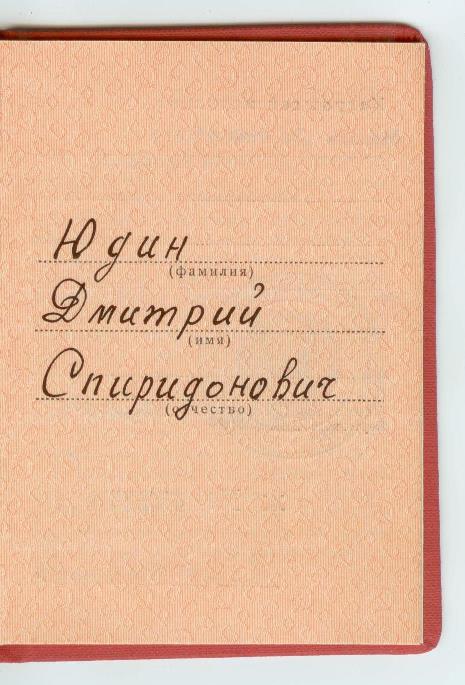 Юдин
(фамилия)
Дмитрий
(имя)
Спиридонович
(отчество)